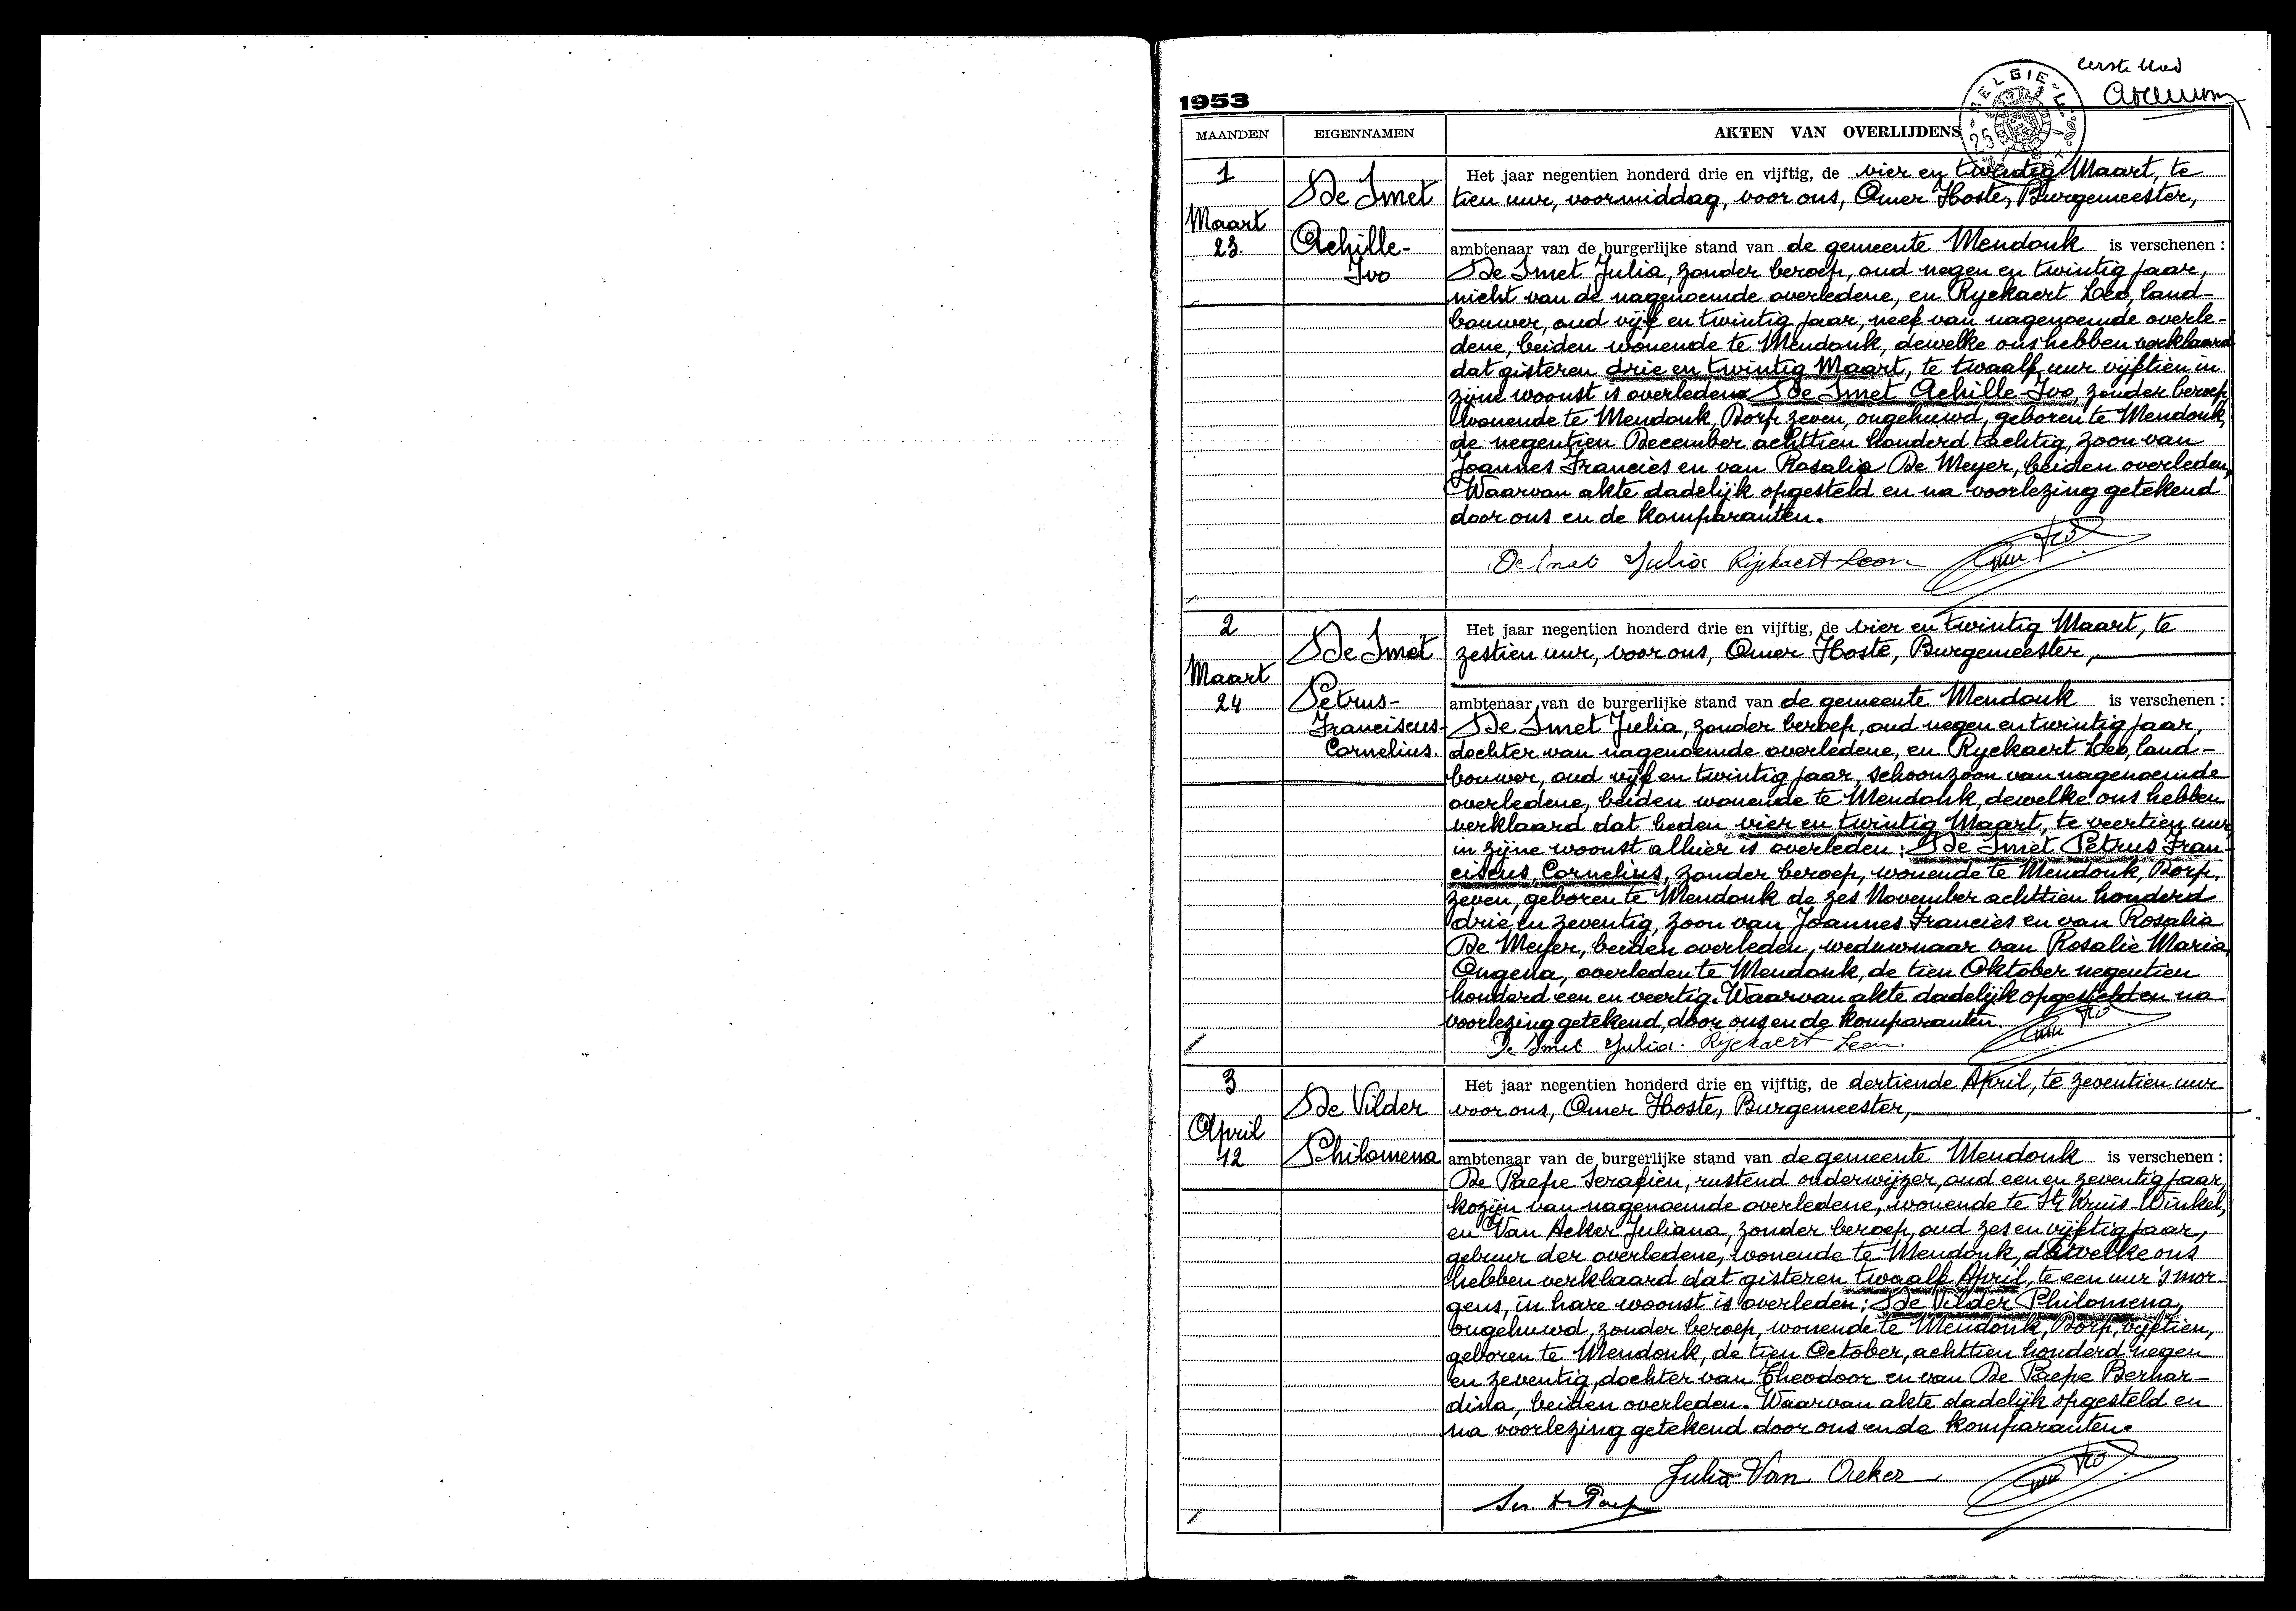 eerste blad
1953
BELGIE
25
MAANDEN EIGENNAMEN AKTEN VAN OVERLIJDENS
1
Maart
23
De Smet
Achille-
Ivo
Het jaar negentien honderd drie en vijftig, de vier en twintig Maart, te
tien uur, voormiddag, voor ons, Omer Hoste, Burgemeester,
ambtenaar van de burgerlijke stand van de gemeente Mendonk is verschenen :
De Smet Julia, zonder beroep, oud negen en twintig jaar,
nicht van de nagenoemde overledene, en Ryckaert Leo, land-
bouwer, oud vijf en twintig jaar, neef van nagenoemde overle-
dene, beiden wonende te Mendonk, dewelke ons hebben verklaard
dat gisteren drie en twintig Maart, te twaalf uur vijftien in
zijne woonst is overleden De Smet Achille Ivo, zonder beroep,
wonende te Mendonk, Dorp zeven, ongehuwd, geboren te Mendonk,
de negentien December achttien honderd tachtig, zoon van
Joannes Francies en van Rosalia De Meyer, beiden overleden,
Waarvan akte dadelijk opgesteld en na voorlezing getekend
door ons en de komparanten.
De Smet Julia Rijckaert Leon
2
Maart
24
De Smet
Petrus-
Franciscus-
Cornelius.
Het jaar negentien honderd drie en vijftig, de vier en twintig Maart, te
zestien uur, voor ons, Omer Hoste, Burgemeester,
ambtenaar van de burgerlijke stand van de gemeente Mendonk is verschenen :
De Smet Julia, zonder beroep, oud negen en twintig jaar,
dochter van nagenoemde overledene, en Ryckaert Leo, land-
bouwer, oud vijf en twintig jaar, schoonzoon van nagenoemde
overledene, beiden wonende te Mendonk, dewelke ons hebben
verklaard dat heden vier en twintig Maart, te veertien uur,
in zijne woonst alhier is overleden : De Smet Petrus Fran-
ciscus, Cornelius, zonder beroep, wonende te Mendonk, Dorp,
zeven, geboren te Mendonk de zes November achttien honderd
drie en zeventig, zoon van Joannes Francies en van Rosalia
De Meyer, beiden overleden, weduwnaar van Rosalie Maria
Ongena, overleden te Mendonk, de tien Oktober negentien
honderd een en veertig. Waarvan akte dadelijk opgesteld en na
voorlezing getekend, door ons en de komparanten.
De Smet Julia. Rijckaert Leon.
3
April
12
De Vilder
Philomena
Het jaar negentien honderd drie en vijftig, de dertiende April, te zeventien uur
voor ons, Omer Hoste, Burgemeester,
ambtenaar van de burgerlijke stand van de gemeente Mendonk is verschenen :
De Paepe Serafien, rustend onderwijzer, oud een en zeventig jaar,
kozijn van nagenoemde overledene, wonende te St Kruis-Winkel,
en Van Acker Juliana, zonder beroep, oud zes en vijftig jaar,
gebuur der overledene, wonende te Mendonk, dewelke ons
hebben verklaard dat gisteren twaalf April, te een uur 's mor-
gens, in hare woonst is overleden : De Vilder Philomena,
ongehuwd, zonder beroep, wonende te Mendonk, Dorp, vijftien,
geboren te Mendonk, de tien October, achttien honderd negen
en zeventig, dochter van Theodoor en van De Paepe Berhar-
dina, beiden overleden. Waarvan akte dadelijk opgesteld en
na voorlezing getekend door ons en de komparanten.
Julia Van Acker
Ser. De Paep